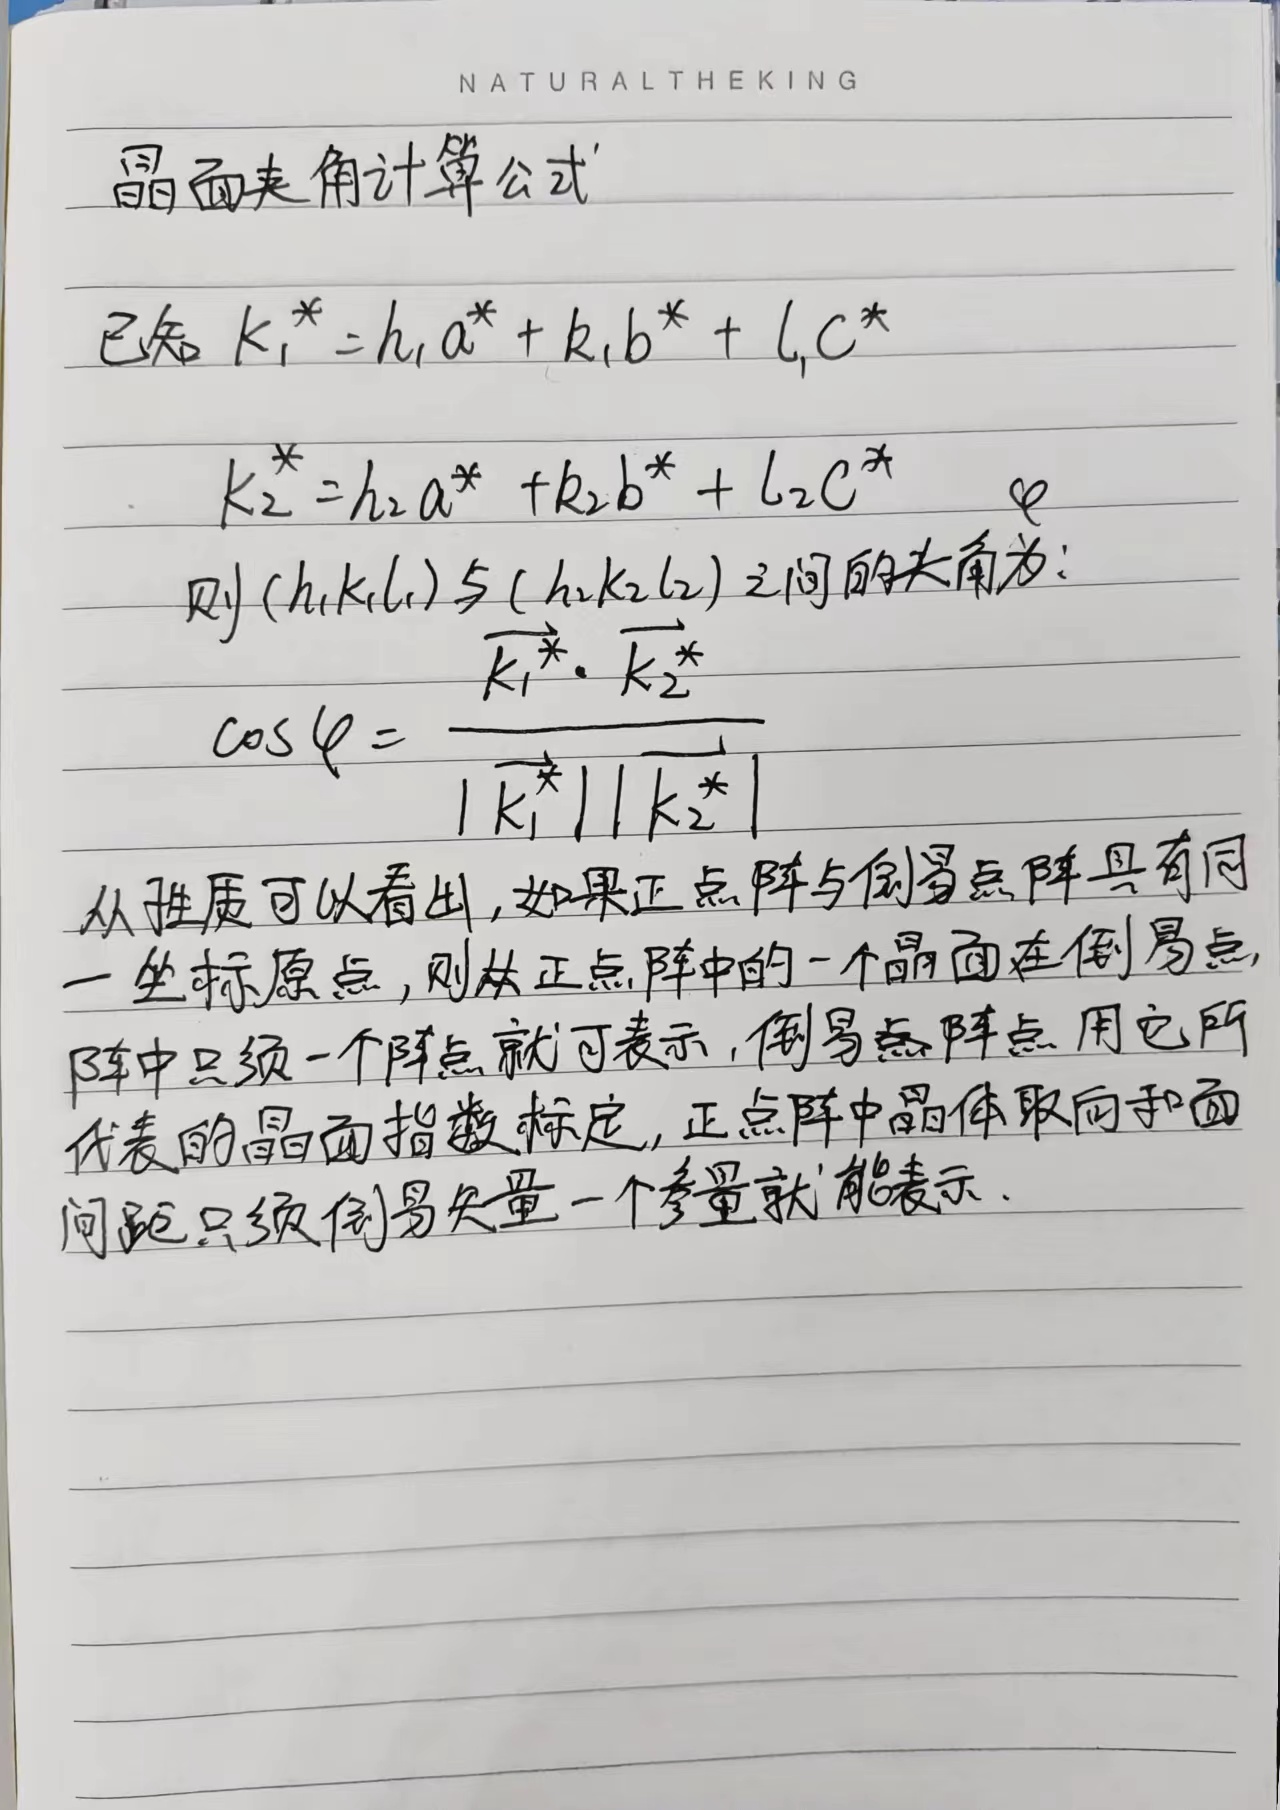 NATURALTHEKING
晶面夹角计算公式
已知 K₁* = h₁a* + k₁b* + l₁c*
K₂* = h₂a* + k₂b* + l₂c*
φ
则(h₁k₁l₁)与(h₂k₂l₂)之间的夹角为:
cosφ = \frac{\overrightarrow{K_1^*} \cdot \overrightarrow{K_2^*}}{|\overrightarrow{K_1^*}||\overrightarrow{K_2^*}|}
从性质可以看出,如果正点阵与倒易点阵具有同
一坐标原点,则从正点阵中的一个晶面在倒易点,
阵中只须一个阵点就可表示,倒易点阵点用它所
代表的晶面指数标定,正点阵中晶体取向和面
间距只须倒易矢量一个参量就能表示.